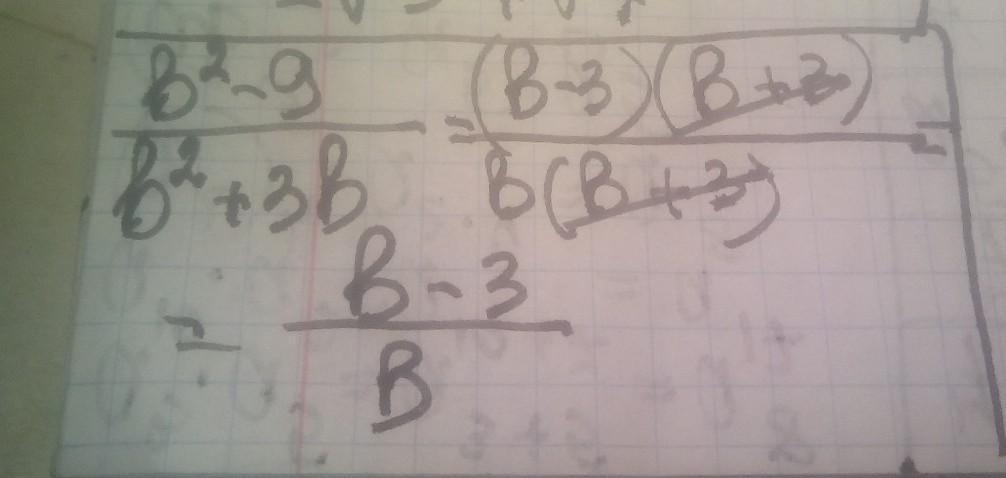 B²-9 / B²+3B = (B-3)(B+3) / B(B+3) =
= B-3 / B